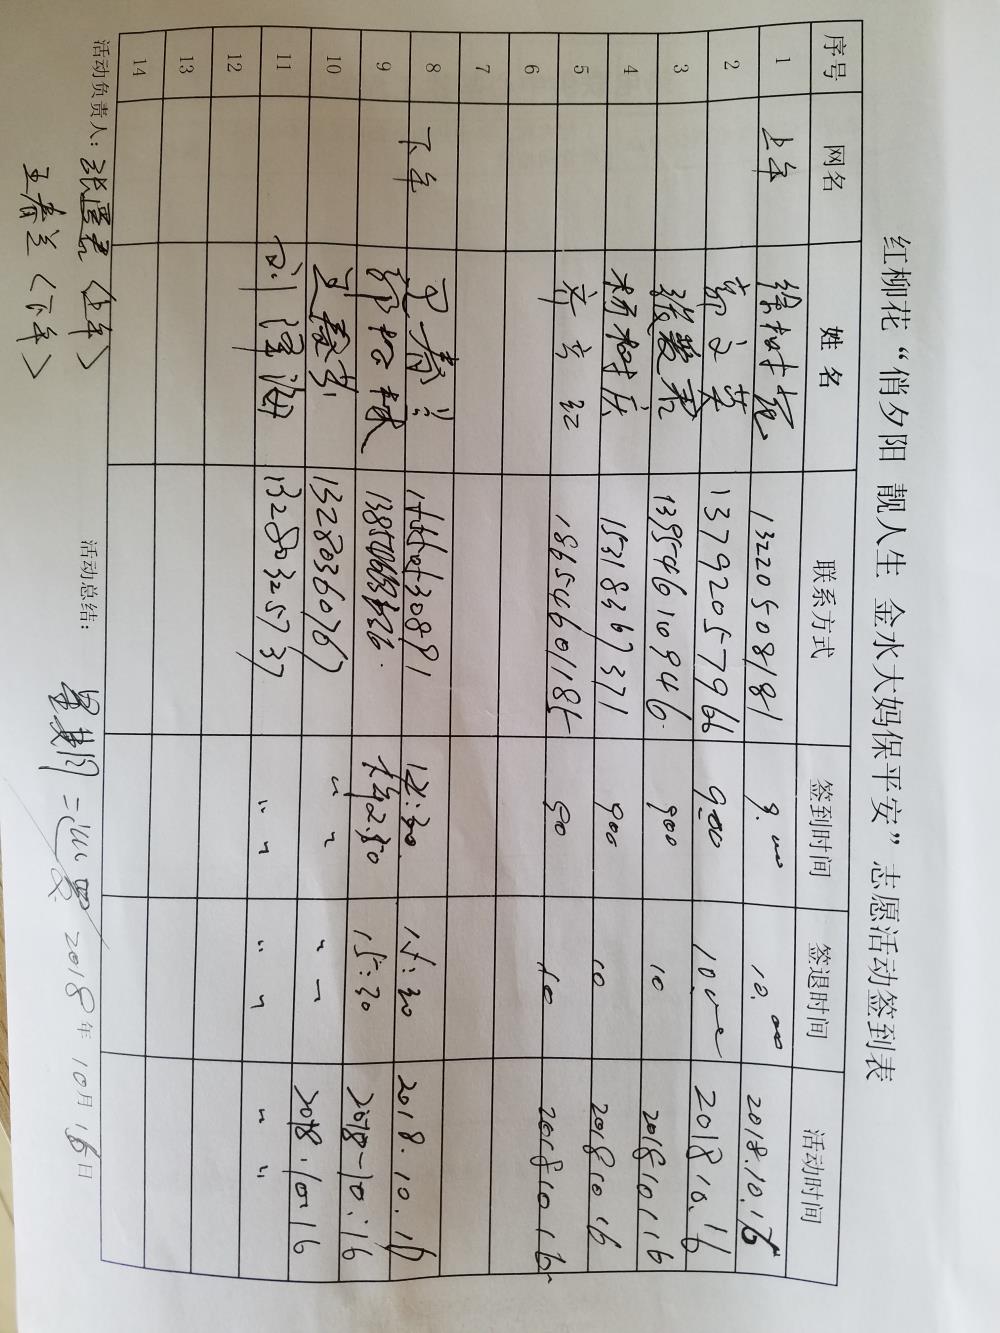 红柳花“俏夕阳 靓人生 金水大妈保平安”志愿活动签到表
序号 网名 姓名 联系方式 签到时间 签退时间 活动时间
1 上午 徐树花 13220508181 9.00 10.00 2018.10.16
2 郭文英 13792057966 9.00 10.00 2018 10.16
3 13954610946. 900 10 2018 10 16
4 杨树庆 15318367371 900 10 2018 10 16
5 18654601185 90 10 2018 10 16
6
7
8 下午 王春兰 12:30 15:30 2018.10.16
9 15:30 2018-10.16
10 13280360767 〃 〃 2018.10.16
11 刘泽海 13280325737 〃 〃 〃 〃 〃 〃
12
13
14
活动负责人: 〈上午〉
王春兰〈下午〉
活动总结: 2018年10月16日